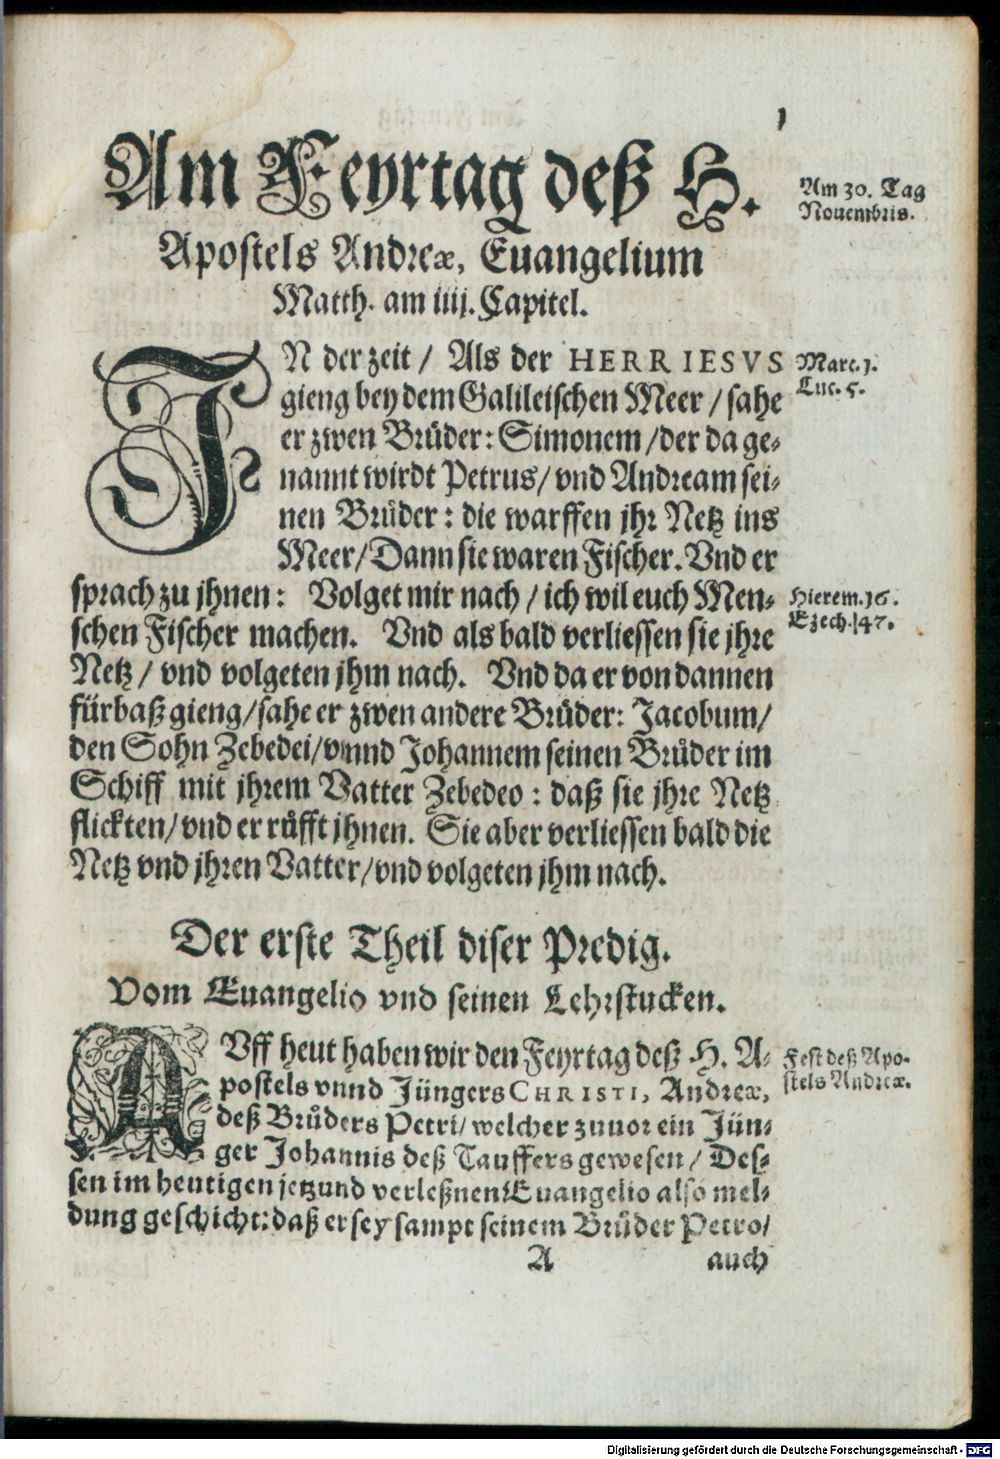 1
Am Feyrtag deß H.
Am 30. Tag
Nouembris.
Apostels Andreæ, Euangelium
Matth. am iiij. Capitel.
IN der zeit / Als der HERR IESVS
Marc. 1.
Luc. 5.
gieng bey dem Galileischen Meer / sahe
er zwen Brůder: Simonem / der da ge-
nannt wirdt Petrus / vnd Andream sei-
nen Brůder: die warffen jhr Netz ins
Meer / Dann sie waren Fischer. Vnd er
sprach zu jhnen: Volget mir nach / ich wil euch Men-
Hierem. 16.
Ezech. 47.
schen Fischer machen. Vnd als bald verliessen sie jhre
Netz / vnd volgeten jhm nach. Vnd da er von dannen
fürbaß gieng / sahe er zwen andere Brůder: Jacobum /
den Sohn Zebedei / vnnd Johannem seinen Brůder im
Schiff mit jhrem Vatter Zebedeo: daß sie jhre Netz
flickten / vnd er růfft jhnen. Sie aber verliessen bald die
Netz vnd jhren Vatter / vnd volgeten jhm nach.
Der erste Theil diser Predig.
Vom Euangelio vnd seinen Lehrstucken.
AVff heut haben wir den Feyrtag deß H. A-
Fest deß Apo-
stels Andreæ.
postels vnnd Jüngers CHRISTI, Andreæ,
deß Brůders Petri / welcher zuuor ein Jün-
ger Johannis deß Tauffers gewesen / Des-
sen im heutigen jetzund verleßnen Euangelio also mel-
dung geschicht: daß er sey sampt seinem Brůder Petro /
A
auch
Digitalisierung gefördert durch die Deutsche Forschungsgemeinschaft - DFG